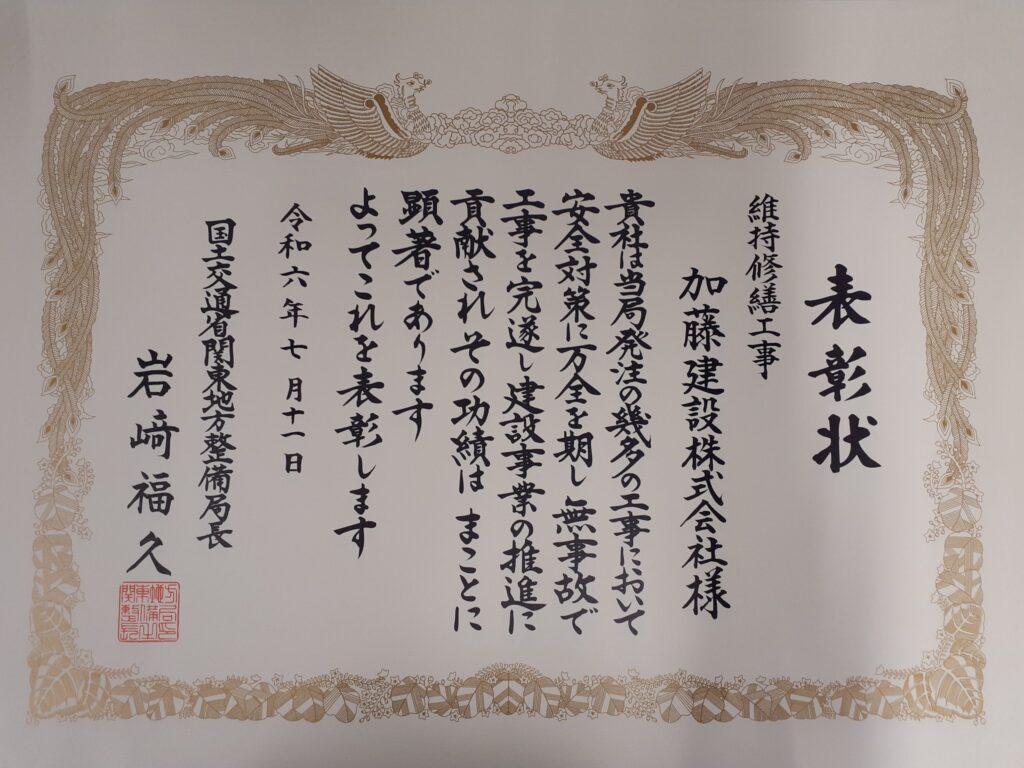 表彰状
維持修繕工事
加藤建設株式会社様
貴社は当局発注の幾多の工事において
安全対策に万全を期し 無事故で
工事を完遂し建設事業の推進に
貢献され その功績は まことに
顕著であります
よってこれを表彰します
令和六年七月十一日
国土交通省関東地方整備局長
岩﨑福久